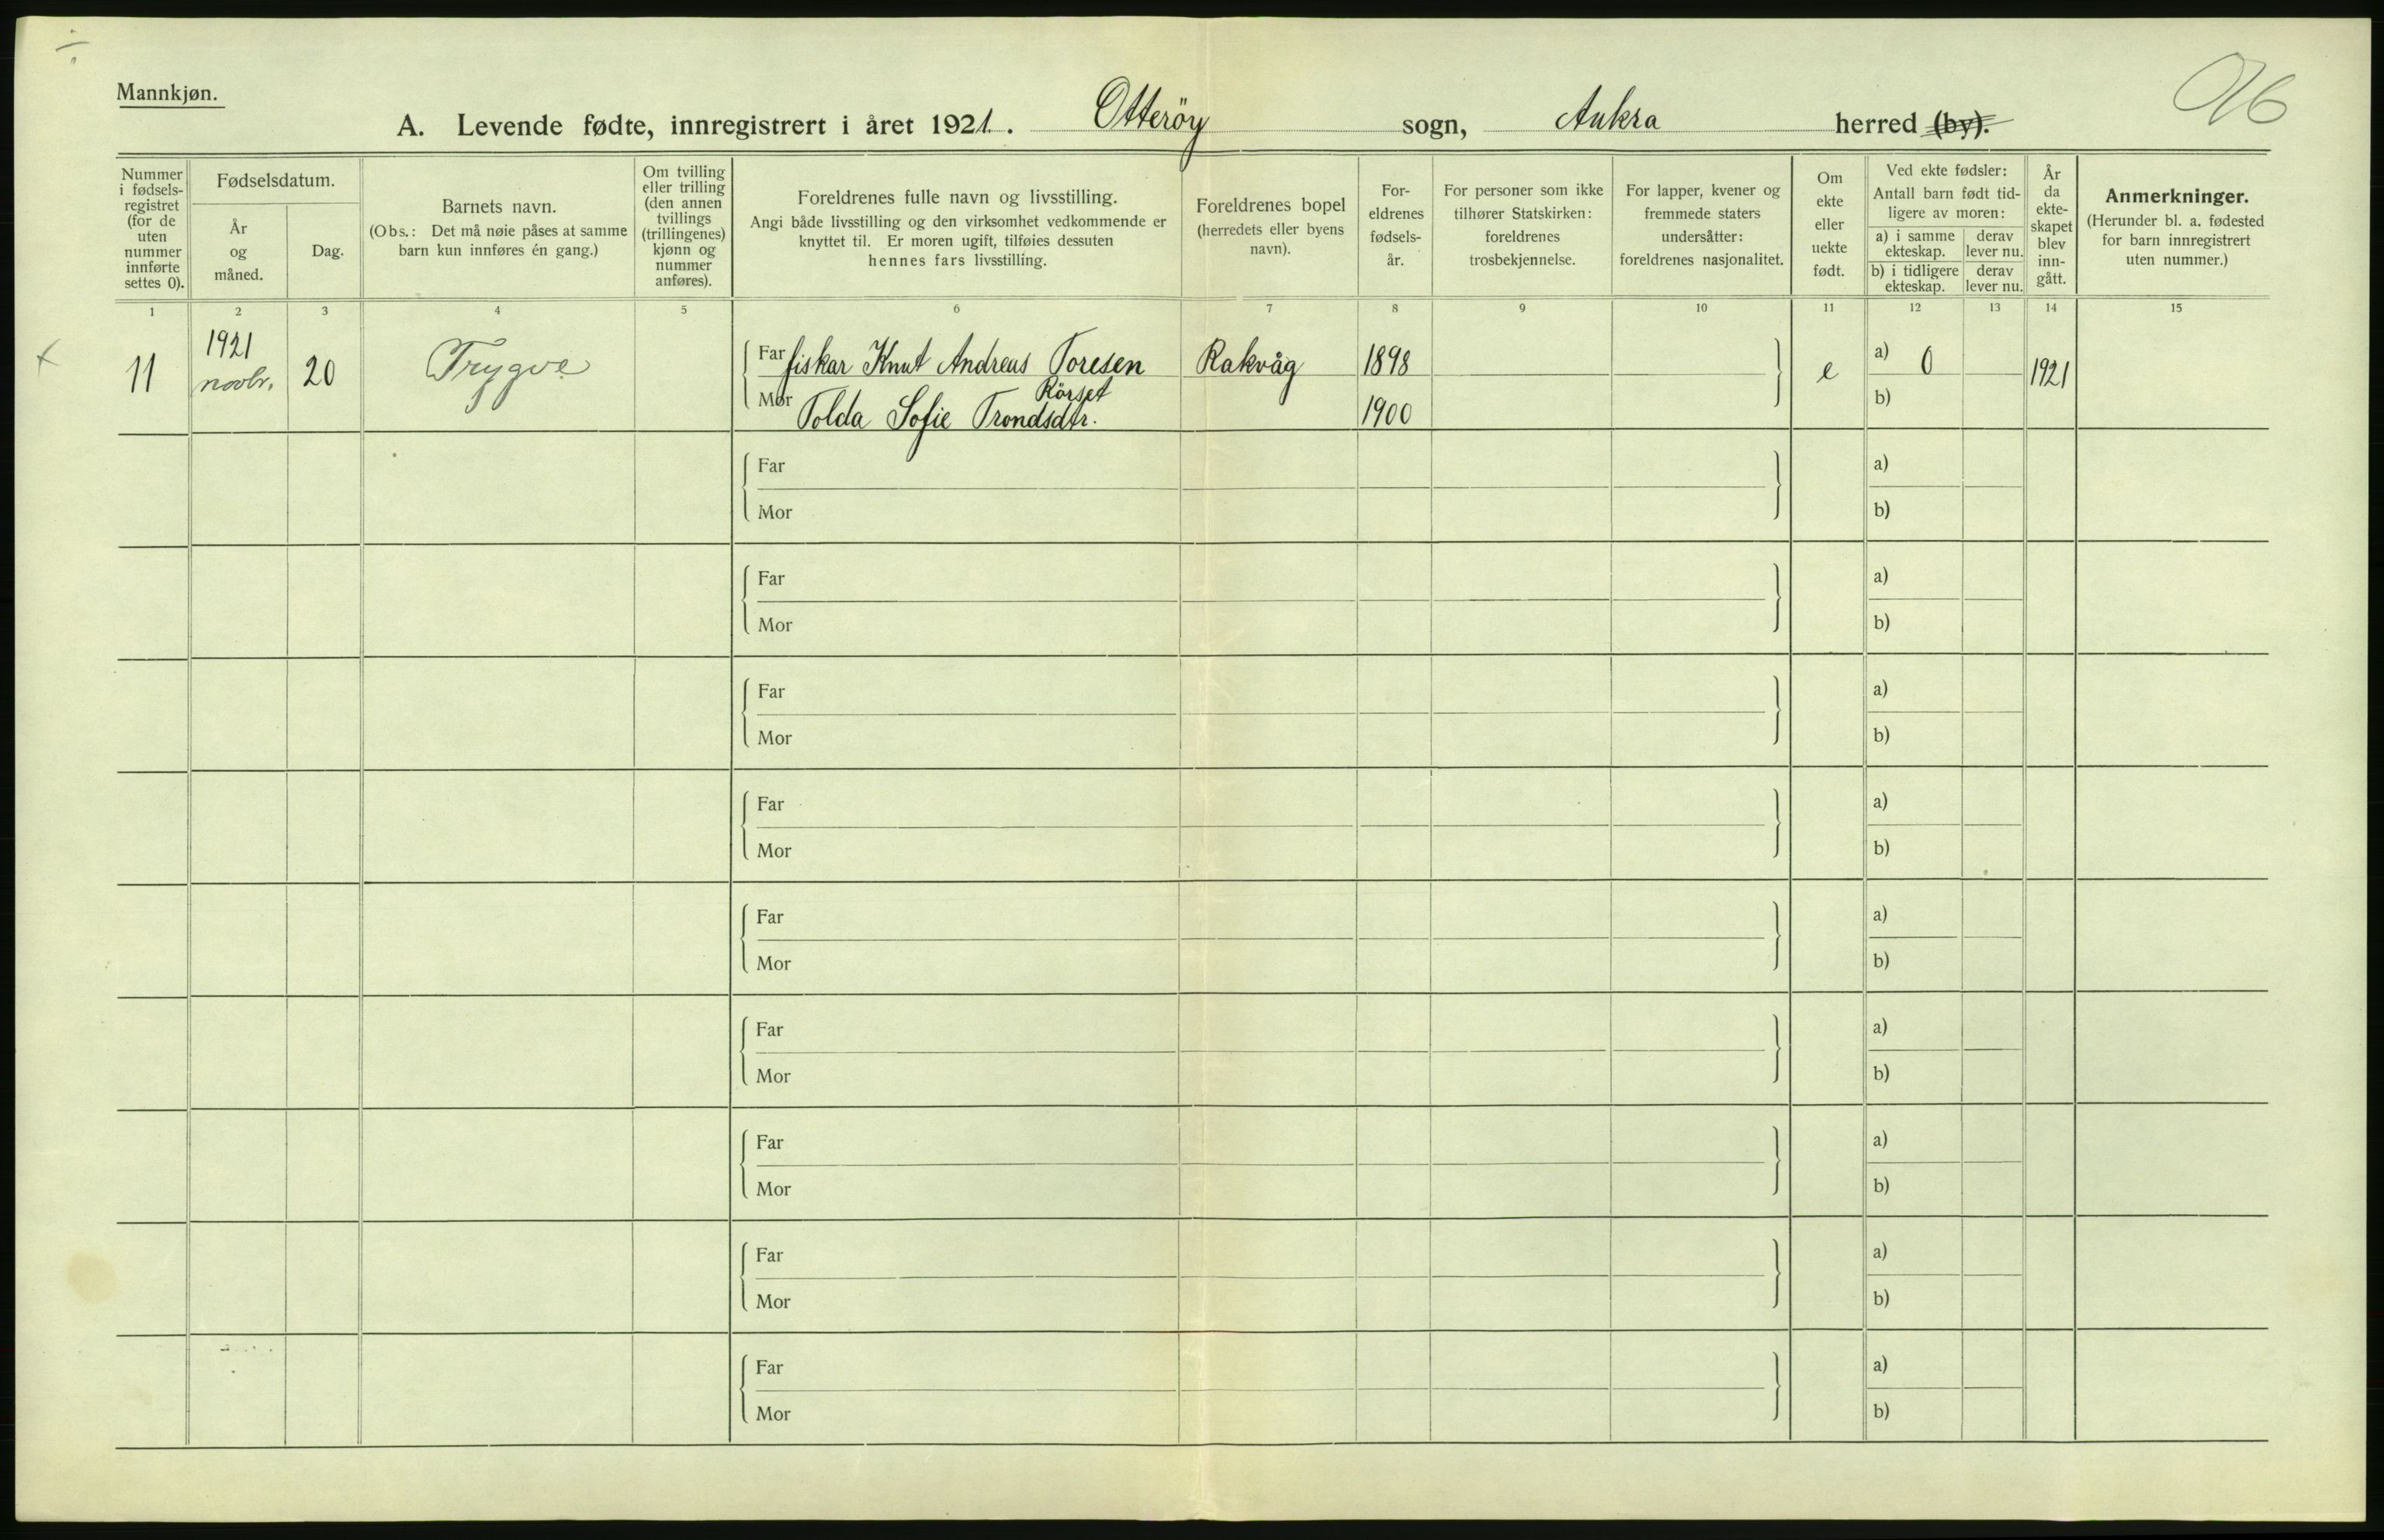 Mannkjøn.
A. Levende fødte, innregistrert i året 1921. Otteröy sogn, Aukra herred (by).
Nummer i fødsels-registret (for de uten nummer innførte settes 0).
Fødselsdatum.
År og måned.
Dag.
Barnets navn.
(Obs.: Det må nøie påses at samme
barn kun innføres én gang.)
Om tvilling
eller trilling
(den annen
tvillings
(trillingenes)
kjønn og
nummer
anføres).
Foreldrenes fulle navn og livsstilling.
Angi både livsstilling og den virksomhet vedkommende er
knyttet til. Er moren ugift, tilføies dessuten
hennes fars livsstilling.
Foreldrenes bopel
(herredets eller byens
navn).
For-
eldrenes
fødsels-
år.
For personer som ikke
tilhører Statskirken:
foreldrenes
trosbekjennelse.
For lapper, kvener og
fremmede staters
undersåtter:
foreldrenes nasjonalitet.
Om
ekte
eller
uekte
født.
Ved ekte fødsler:
Antall barn født tid-
ligere av moren:
a) i samme
ekteskap.
derav
lever nu.
b) i tidligere
ekteskap.
derav
lever nu.
År
da
ekte-
skapet
blev
inn-
gått.
Anmerkninger.
(Herunder bl. a. fødested
for barn innregistrert
uten nummer.)
1 2 3 4 5 6 7 8 9 10 11 12 13 14 15
11 1921 novbr. 20 Trygve
Far fiskar Knut Andreas Toresen Rakvåg 1898 e a) 0 1921
Rörset
Mor Tolda Sofie Trondsdtr. 1900 b)
Far a)
Mor b)
Far a)
Mor b)
Far a)
Mor b)
Far a)
Mor b)
Far a)
Mor b)
Far a)
Mor b)
Far a)
Mor b)
Far a)
Mor b)
Far a)
Mor b)